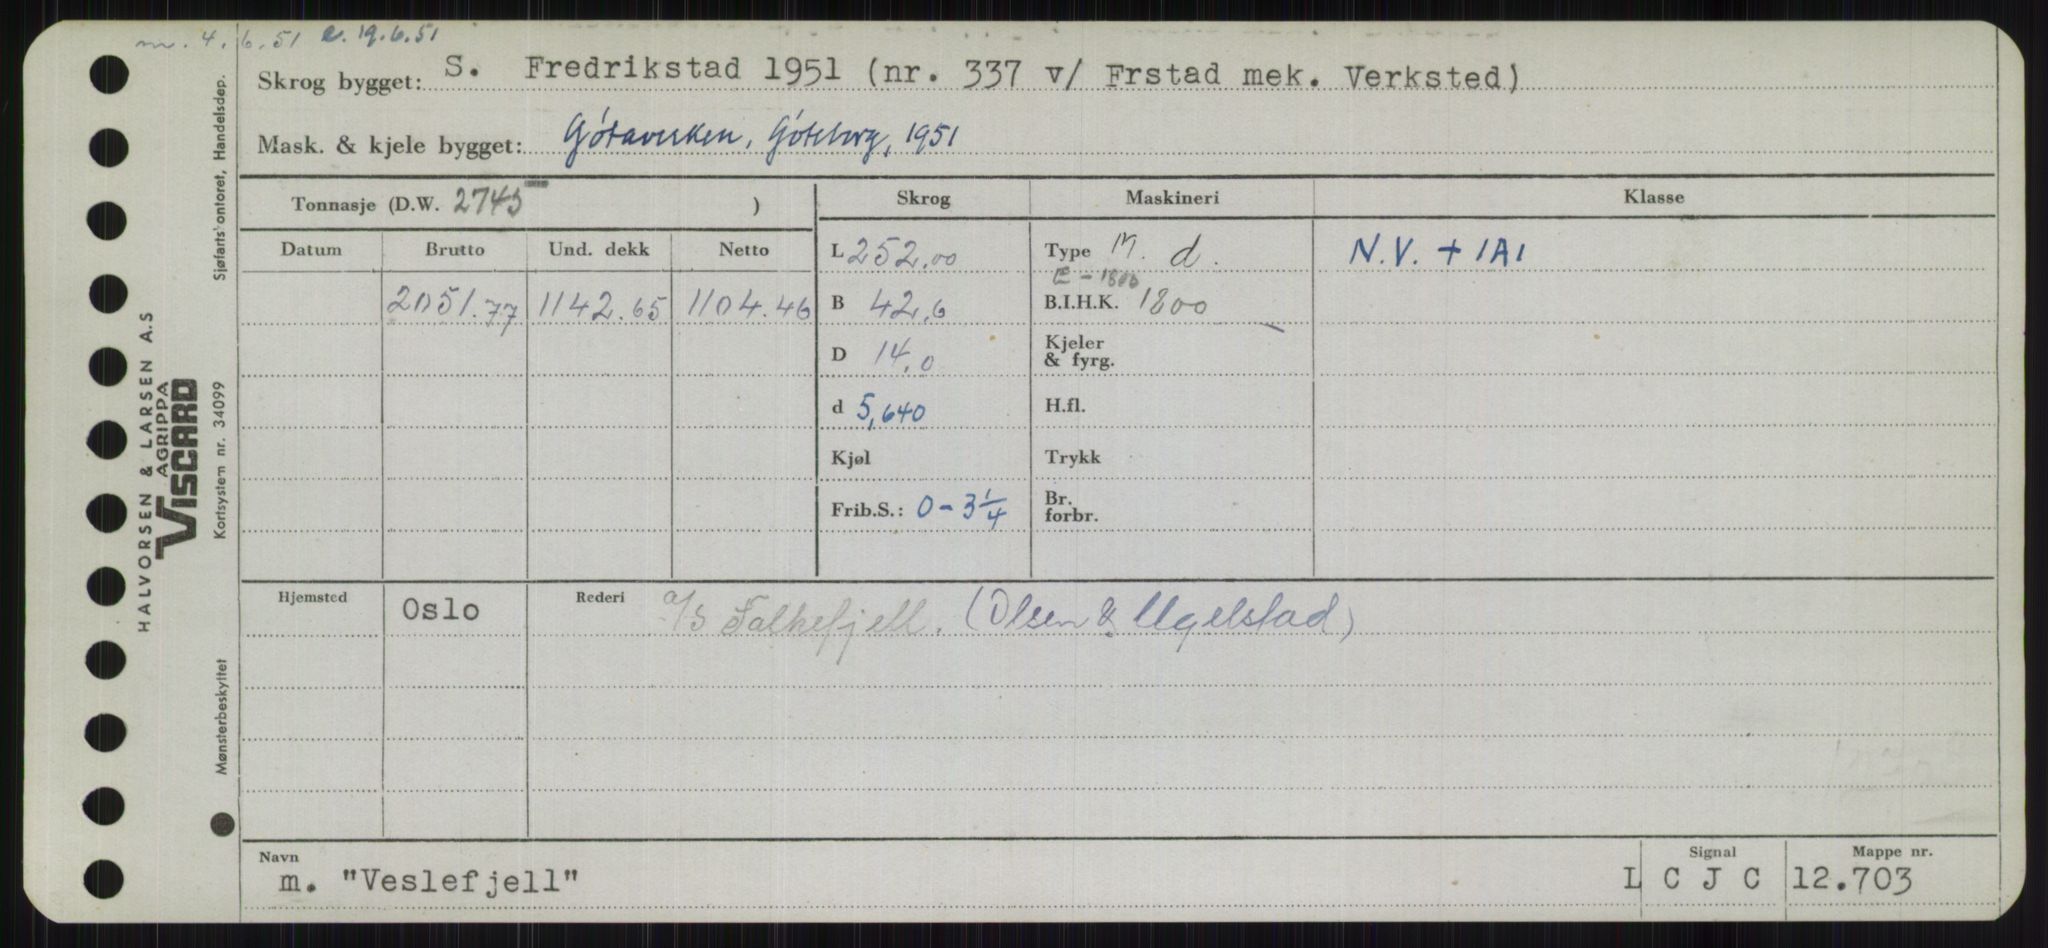 m. 4. 6. 51 e. 19.6.51
Skrog bygget: S. Fredrikstad 1951 (nr. 337 v/ Frstad mek. Verksted)
Mask. & kjele bygget: Götaverken, Göteborg, 1951
Tonnasje (D.W. 2745 )
Skrog Maskineri Klasse
Datum Brutto Und. dekk Netto
L 252.00 Type M. d. N.V. + 1A1
E - 1800
2051.77 1142.65 1104.46 B 42,6 B.I.H.K. 1800
D 14,0 Kjeler & fyrg.
d 5,640 H.fl.
Kjøl Trykk
Frib.S.: 0-3 1/4 Br. forbr.
Hjemsted Oslo Rederi a/s Falkefjell. (Olsen & Ugelstad)
Navn m. "Veslefjell" Signal L C J C Mappe nr. 12.703
HALVORSEN & LARSEN A.S
AGRIPPA
VISCARD
Mønsterbeskyttet Kortsystem nr. 34099 Sjøfartskontoret, Handelsdep.